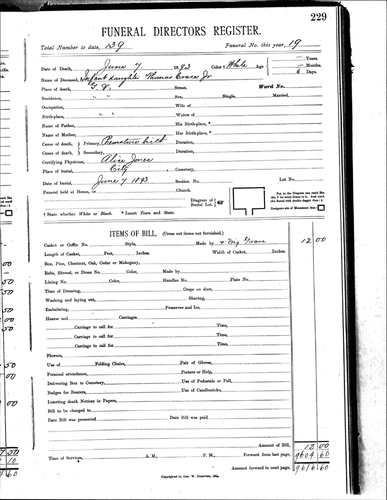 229
FUNERAL DIRECTORS REGISTER.
Total Number to date, 139 Funeral No. this year, 19
Date of Death, June 7 1893 Color † White Age — Years,
— Months,
6 Days,
Name of Deceased, Infant daughter Thomas Jr
Place of death, Street. Ward No.
Residence, " " Sex, Single, Married,
Occupation, Wife of
Birth-place, " " Widow of
Name of Father, His Birth-place, *
Name of Mother, Her Birth-place, *
Cause of death, Primary, Premature birth Duration,
Cause of death, Secondary, Duration,
Certifying Physician, Alice Jones
Place of burial, City Cemetery,
Date of burial, June 7, 1893 Section No. Lot No.
Funeral held at Home, or Church.
Diagram of Burial Lot.
Put in the Diagram one mark for every Grave in it. And
† State whether White or Black. * Insert Town and State.
ITEMS OF BILL. (Cross out items not furnished.)
Casket or Coffin No. Style, Made by + Dig Grave 12 00
Length of Casket, Feet, Inches. Width of Casket, Inches
Box, Pine, Chestnut, Oak, Cedar or Mahogany,
Robe, Shroud, or Dress No. Color, Made by
Lining No. Color, Handles No. Plate No.
Time of Dressing, Crape on door,
Washing and laying out, Shaving,
Embalming, Preserver and Ice,
Hearse and Carriages
Carriage to call for Time,
Carriage to call for Time,
Carriage to call for Time,
Flowers,
Use of Folding Chairs, Pair of Gloves,
Personal attendance, Porters or Help,
Delivering Box to Cemetery, Use of Pedestals or Pall,
Badges for Bearers, Use of Candlesticks,
Inserting death Notices in Papers,
Bill to be charged to
Date Bill was presented Date Bill was paid
Amount of Bill, 12 00
Time of Services, A. M., P. M. Forward from last page, 9604 60
Amount forward to next page, 9616 60